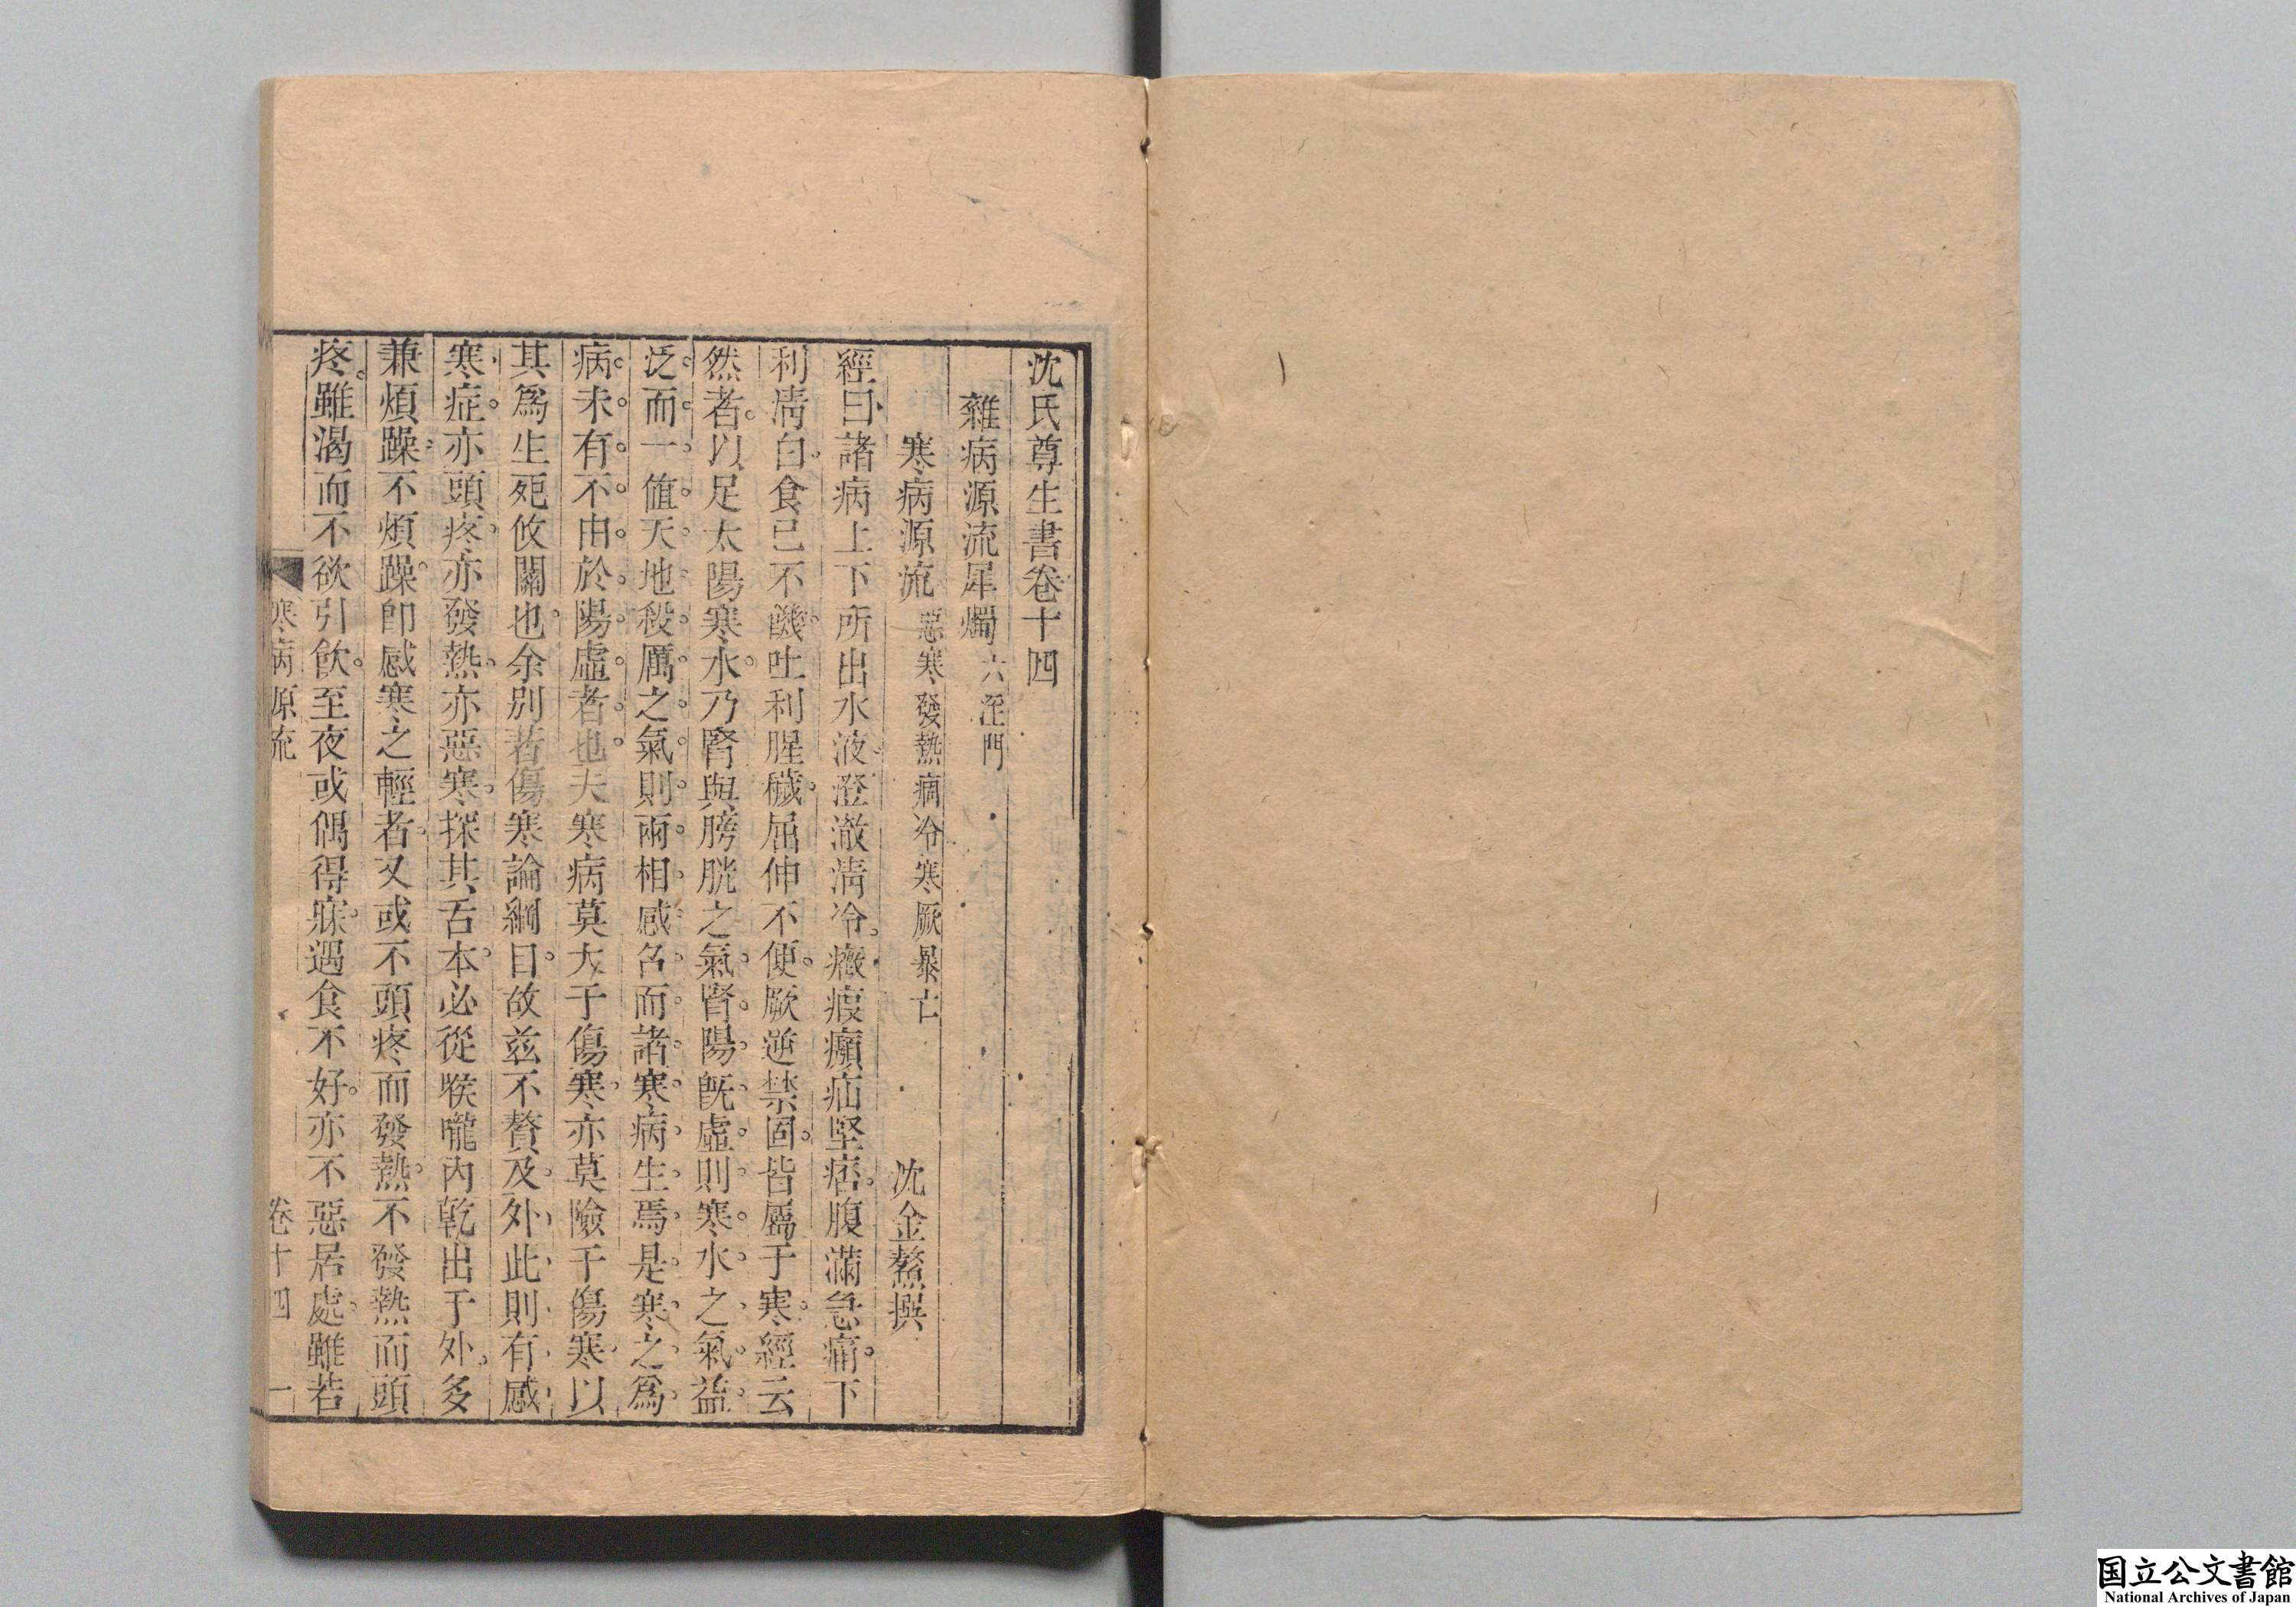 沈氏尊生書卷十四
雜病源流犀燭 六淫門
寒病源流 惡寒發熱 痼冷 寒厥暴亡
沈金鰲撰
經曰諸病上下所出水液澄澈清冷。癥瘕㿗疝堅痞。腹滿急痛。下
利清白。食已不饑。吐利腥穢。屈伸不便。厥逆禁固。皆屬于寒。經云
然者。以足太陽寒水。乃腎與膀胱之氣。腎陽既虛。則寒水之氣益
泛。而一值天地殺厲之氣。則兩相感召。而諸寒病生焉。是寒之爲
病。未有不由於陽虛者也。夫寒病莫大于傷寒。亦莫險于傷寒。以
其爲生死攸關也。余別著傷寒論綱目。故茲不贅及。外此則有感
寒症。亦頭疼。亦發熱。亦惡寒。探其舌本。必從喉嚨內乾出于外。多
兼煩躁。不煩躁。即感寒之輕者。又或不頭疼而發熱。不發熱而頭
疼。雖渴而不欲引飲。至夜或偶得寐。遇食不好。亦不惡居處。雖若
寒病源流 卷十四 一
国立公文書館
National Archives of Japan